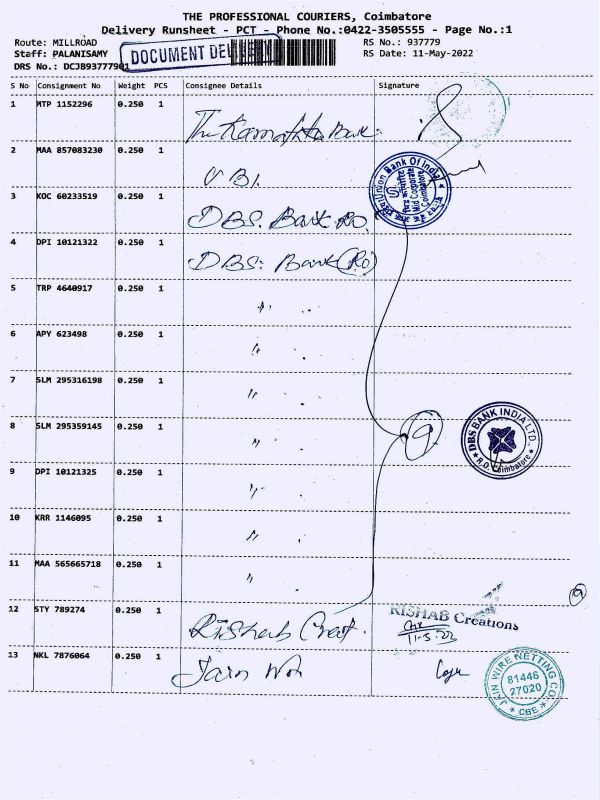 THE PROFESSIONAL COURIERS, Coimbatore
Delivery Runsheet - PCT - Phone No.:0422-3505555 - Page No.:1
Route: MILLROAD
RS No.: 937779
Staff: PALANISAMY
DOCUMENT DEL
RS Date: 11-May-2022
DRS No.: DCJB93777901
S No Consignment No Weight PCS Consignee Details Signature
1 MTP 1152296 0.250 1
The Karnataka Bank
2 MAA 857083230 0.250 1
UBI.
Union Bank Of India
Mid Corporate
3 KOC 60233519 0.250 1
DBS. Bank RO.
4 DPI 10121322 0.250 1
DBS: Bank (RO)
5 TRP 4640917 0.250 1 "
6 APY 623498 0.250 1 "
7 SLM 295316198 0.250 1 "
8 SLM 295359145 0.250 1 "
9
DBS BANK INDIA LTD.
R.O. Coimbatore
9 DPI 10121325 0.250 1 "
10 KRR 1146095 0.250 1 "
11 MAA 565665718 0.250 1 "
9
12 STY 789274 0.250 1
Rishab Creat.
RISHAB Creations
11-5-22
13 NKL 7876064 0.250 1
Jain
JAIN WIRE NETTING CO.
81446
27020
CBE